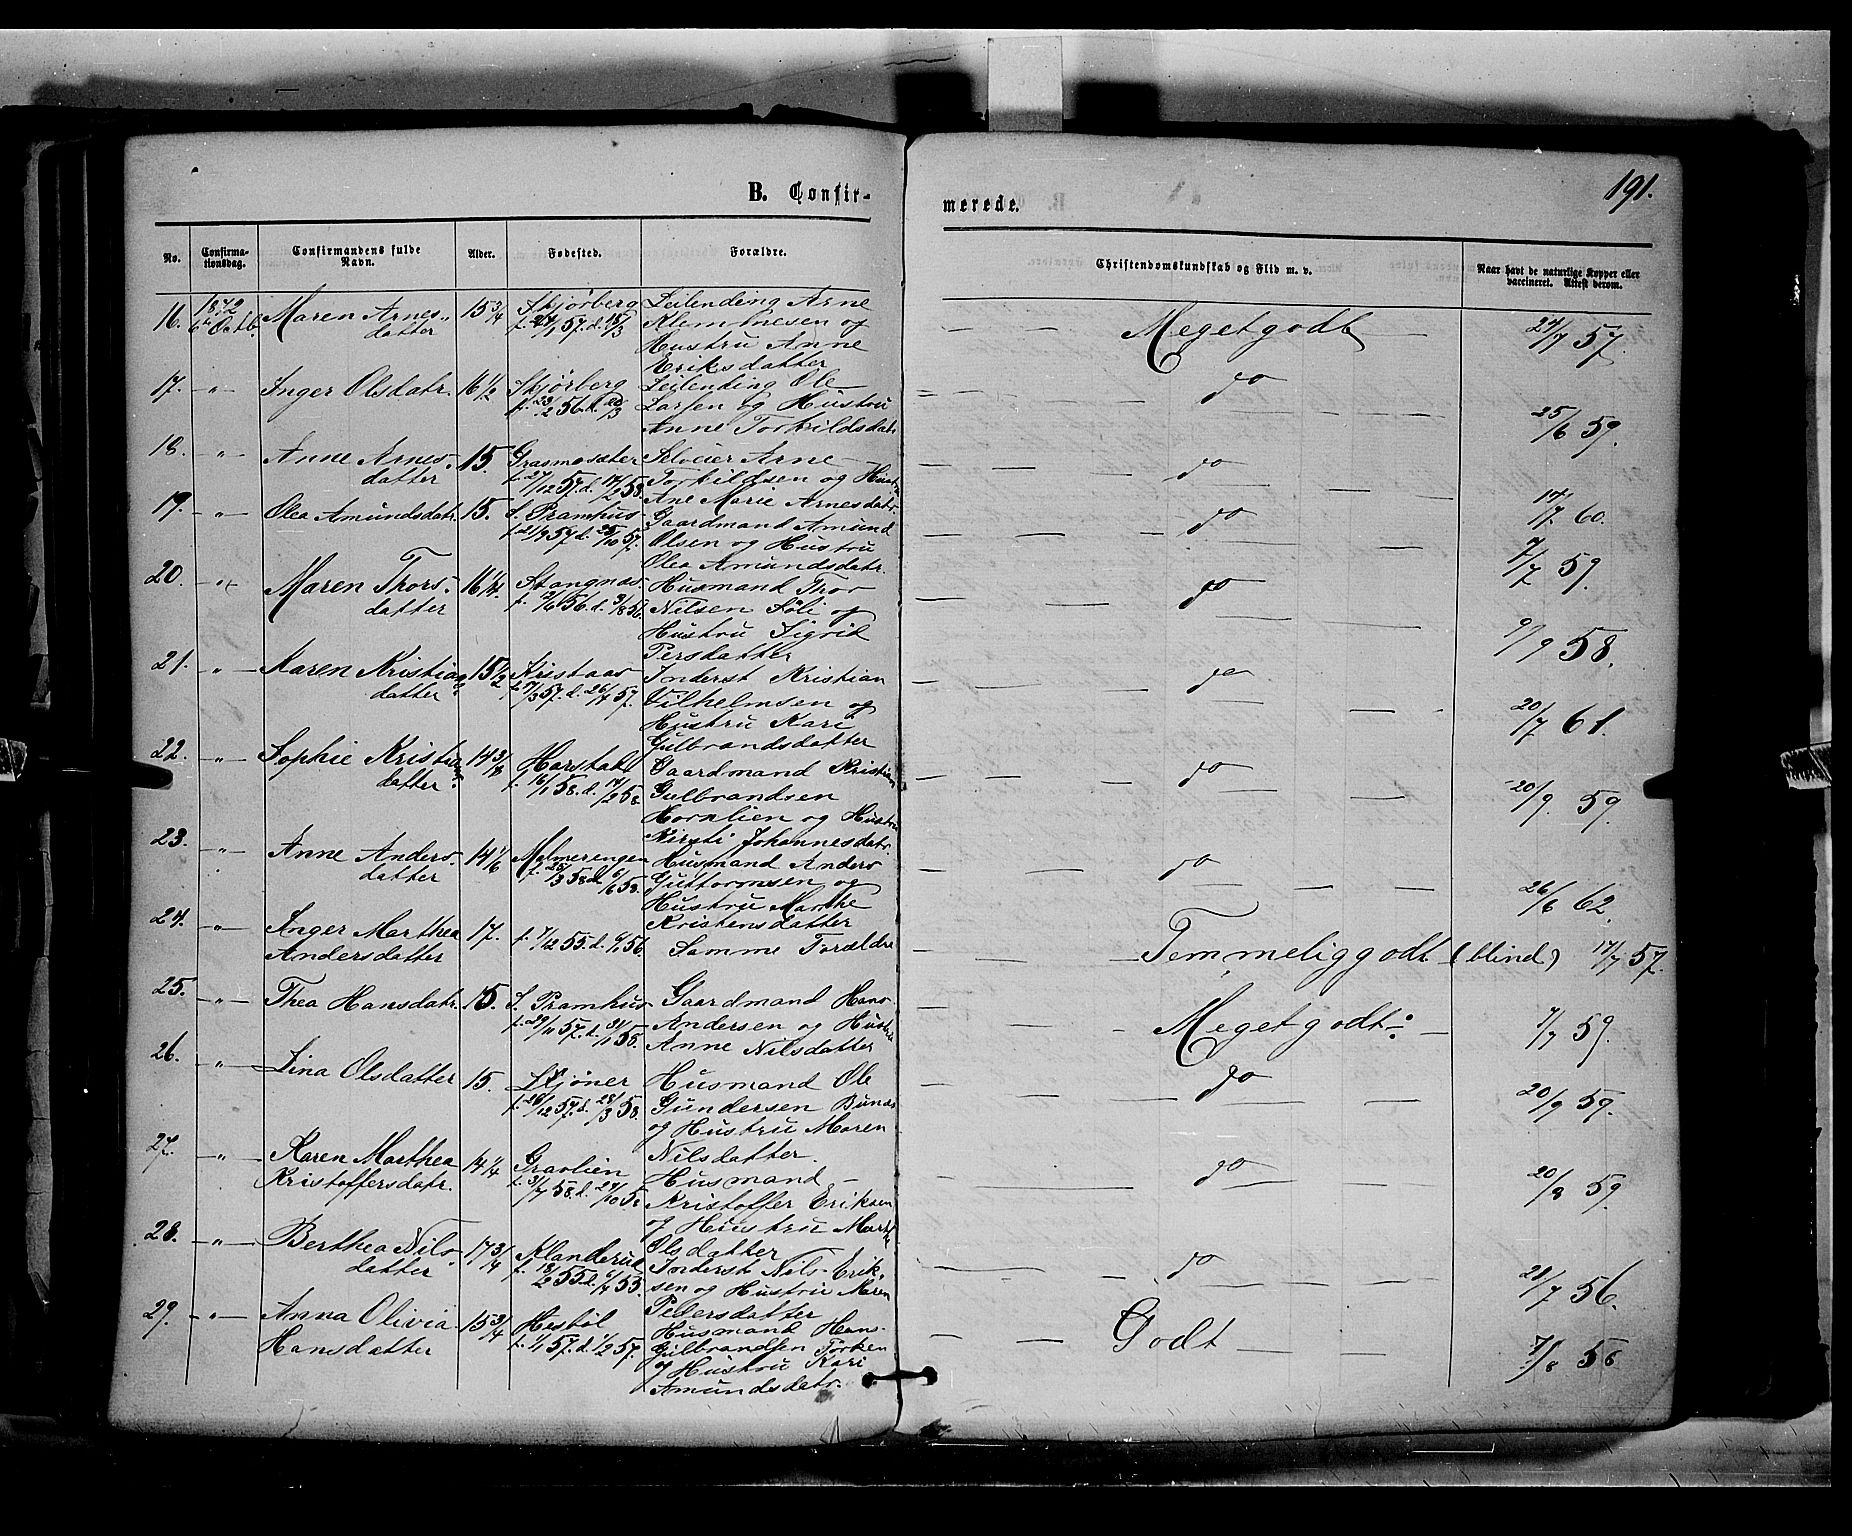 B. Confir-
merede.
191.
No.
Confirma-
tionsdag.
Confirmandens fulde
Navn.
Alder.
Fødested.
Forældre.
Christendomskundskab og Flid m. v.
Naar havt de naturlige Kopper eller
vaccineret. Attest derom.
16. 1872 6te Octb. Maren Arnes-
datter
15 3/4 Skjørberg
f. 24/1 57. d. 18/3
Leilending Arne
Klemmetsen og
Hustru Anne
Eriksdatter
— — Meget godt — 24/7 57.
17. -"- Inger Olsdatr. 16 1/2 Skjørberg
f. 23/2 56. d. 20/3
Leilending Ole
Larsen og Hustru
Anne Torkildsdatr
do 25/6 59.
18. -"- Anne Arnes-
datter
15. Grasmosæter
f. 27/12 57. d. 14/2 58.
Selveier Arne
Torkildsen og Hustru
Ane Marie Arnesdatr
do 17/7 60.
19. -"- Olea Amundsdatr. 15. S. Pramhus
f. 21/9 57. d. 25/10 57.
Gaardmand Amund
Olsen og Hustru
Olea Amundsdatr.
do 7/7 59.
20. -"- Maren Thors-
datter
16 1/4. Stangnæs
f. 2/6 56. d. 3/8 56.
Husmand Thor
Nilsen Søli og
Hustru Sigrid
Persdatter
do 9/9 58.
21. -"- Karen Kristians-
datter
15 1/2 Kristaas
f. 7/3 57. d. 26/4 57.
Inderst Kristian
Vilhelmsen og
Hustru Kari
Gulbrandsdatter
do 20/7 61.
22. -"- Sophie Kristians-
datter.
14 3/8 Harstad
f. 16/1 58. d. 14/2 58.
Gaardmand Kristian
Gulbrandsen
Hornlien og Hustru
Kirsti Johannesdatr.
do 20/9. 59.
23. -"- Anne Anders-
datter
14 1/6 Malmerengen
f. 25/3 58. d. 6/6 58.
Husmand Anders
Guttormsen og
Hustru Marthe
Kristensdatter
do 26/6 62.
24. -"- Inger Marthea
Andersdatter
17. f. 7/12 55. d. 6/1 56.
Samme Forældre
Temmelig godt (blind) 17/7 57.
25. -"- Thea Hansdatr. 15. S. Pramhus
f. 29/11 57. d. 31/1 58.
Gaardmand Hans
Andersen og Hustru
Anne Nilsdatter
Meget godt. 7/7 59.
26. -"- Lina Olsdatter 15. Skjøner
f. 20/12 57. d. 28/3 58.
Husmand Ole
Gundersen Bunæs
og Hustru Maren
Nilsdatter.
do 20/9 59.
27. -"- Karen Marthea
Kristoffersdatr.
14 1/4 Gravlien
f. 31/7 58. d. 24/10 58
Husmand
Kristoffer Eriksen
og Hustru Marthe
Olsdatter
do 20/8 59.
28. -"- Berthea Nils-
datter
17 3/4 Klanderud
f. 18/2 55. d. 6/4 55.
Inderst Nils Erik-
sen og Hustru Maren
Pedersdatter
do 28/7 56.
29. -"- Anna Olivia
Hansdatter
15 3/4 Hestøl
f. 1/1 57. d. 1/2 57.
Husmand Hans
Gulbrandsen
og Hustru Kari
Amundsdatr.
— — Godt — 7/8 58